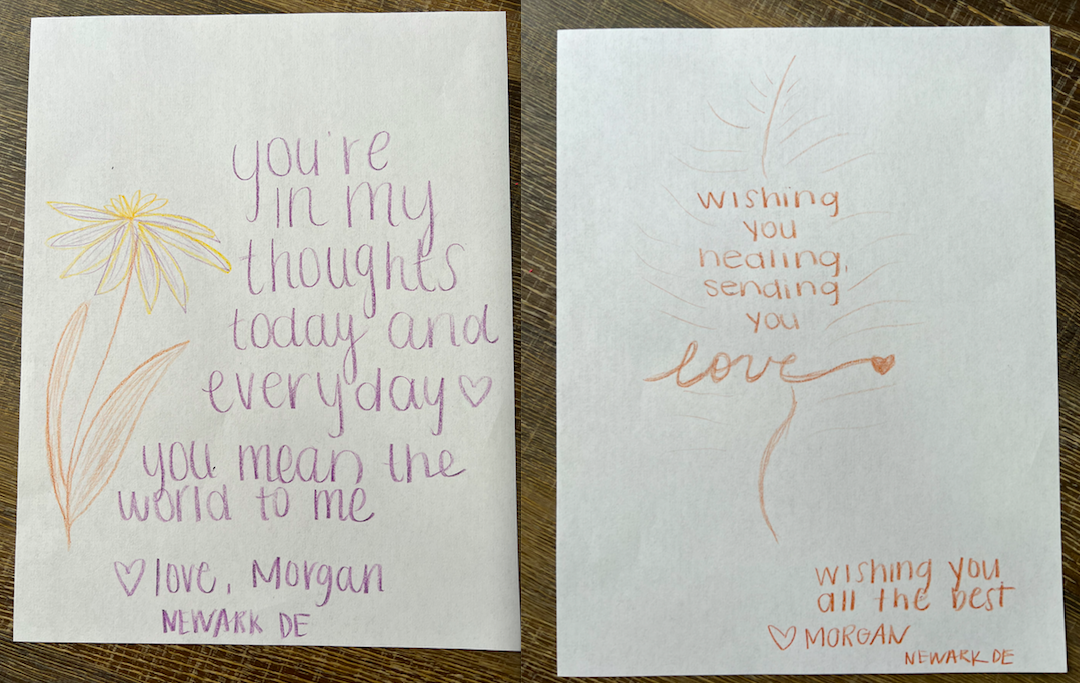 you're
in my
thoughts
today and
everyday ♡
you mean the
world to me
♡ love, Morgan
NEWARK DE
wishing
you
healing,
sending
you
love
wishing you
all the best
♡ MORGAN
NEWARK DE